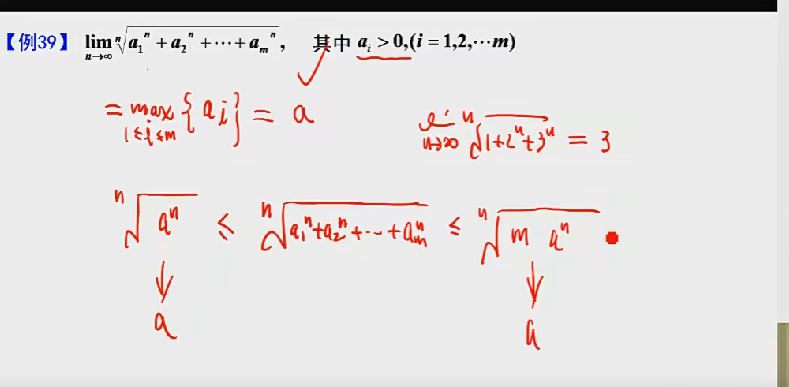 【例39】 lim_{n→∞} ⁿ√(a₁ⁿ + a₂ⁿ + ⋯ + aₘⁿ), 其中 aᵢ > 0, (i = 1,2,⋯m)
= max_{1≤i≤m} {ai} = a
lim_{n→∞} ⁿ√(1+2ⁿ+3ⁿ) = 3
ⁿ√(aⁿ) ≤ ⁿ√(a₁ⁿ+a₂ⁿ+⋯+aₘⁿ) ≤ ⁿ√(m aⁿ)
↓ ↓
a a